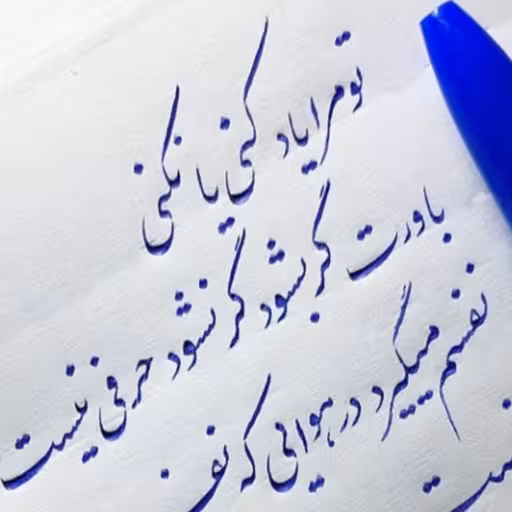 تو مرا یاد کنی یا نکنی
باورت گر بشود گر نشود حرفی نیست
نفسم میگیرد در هوایی که نف